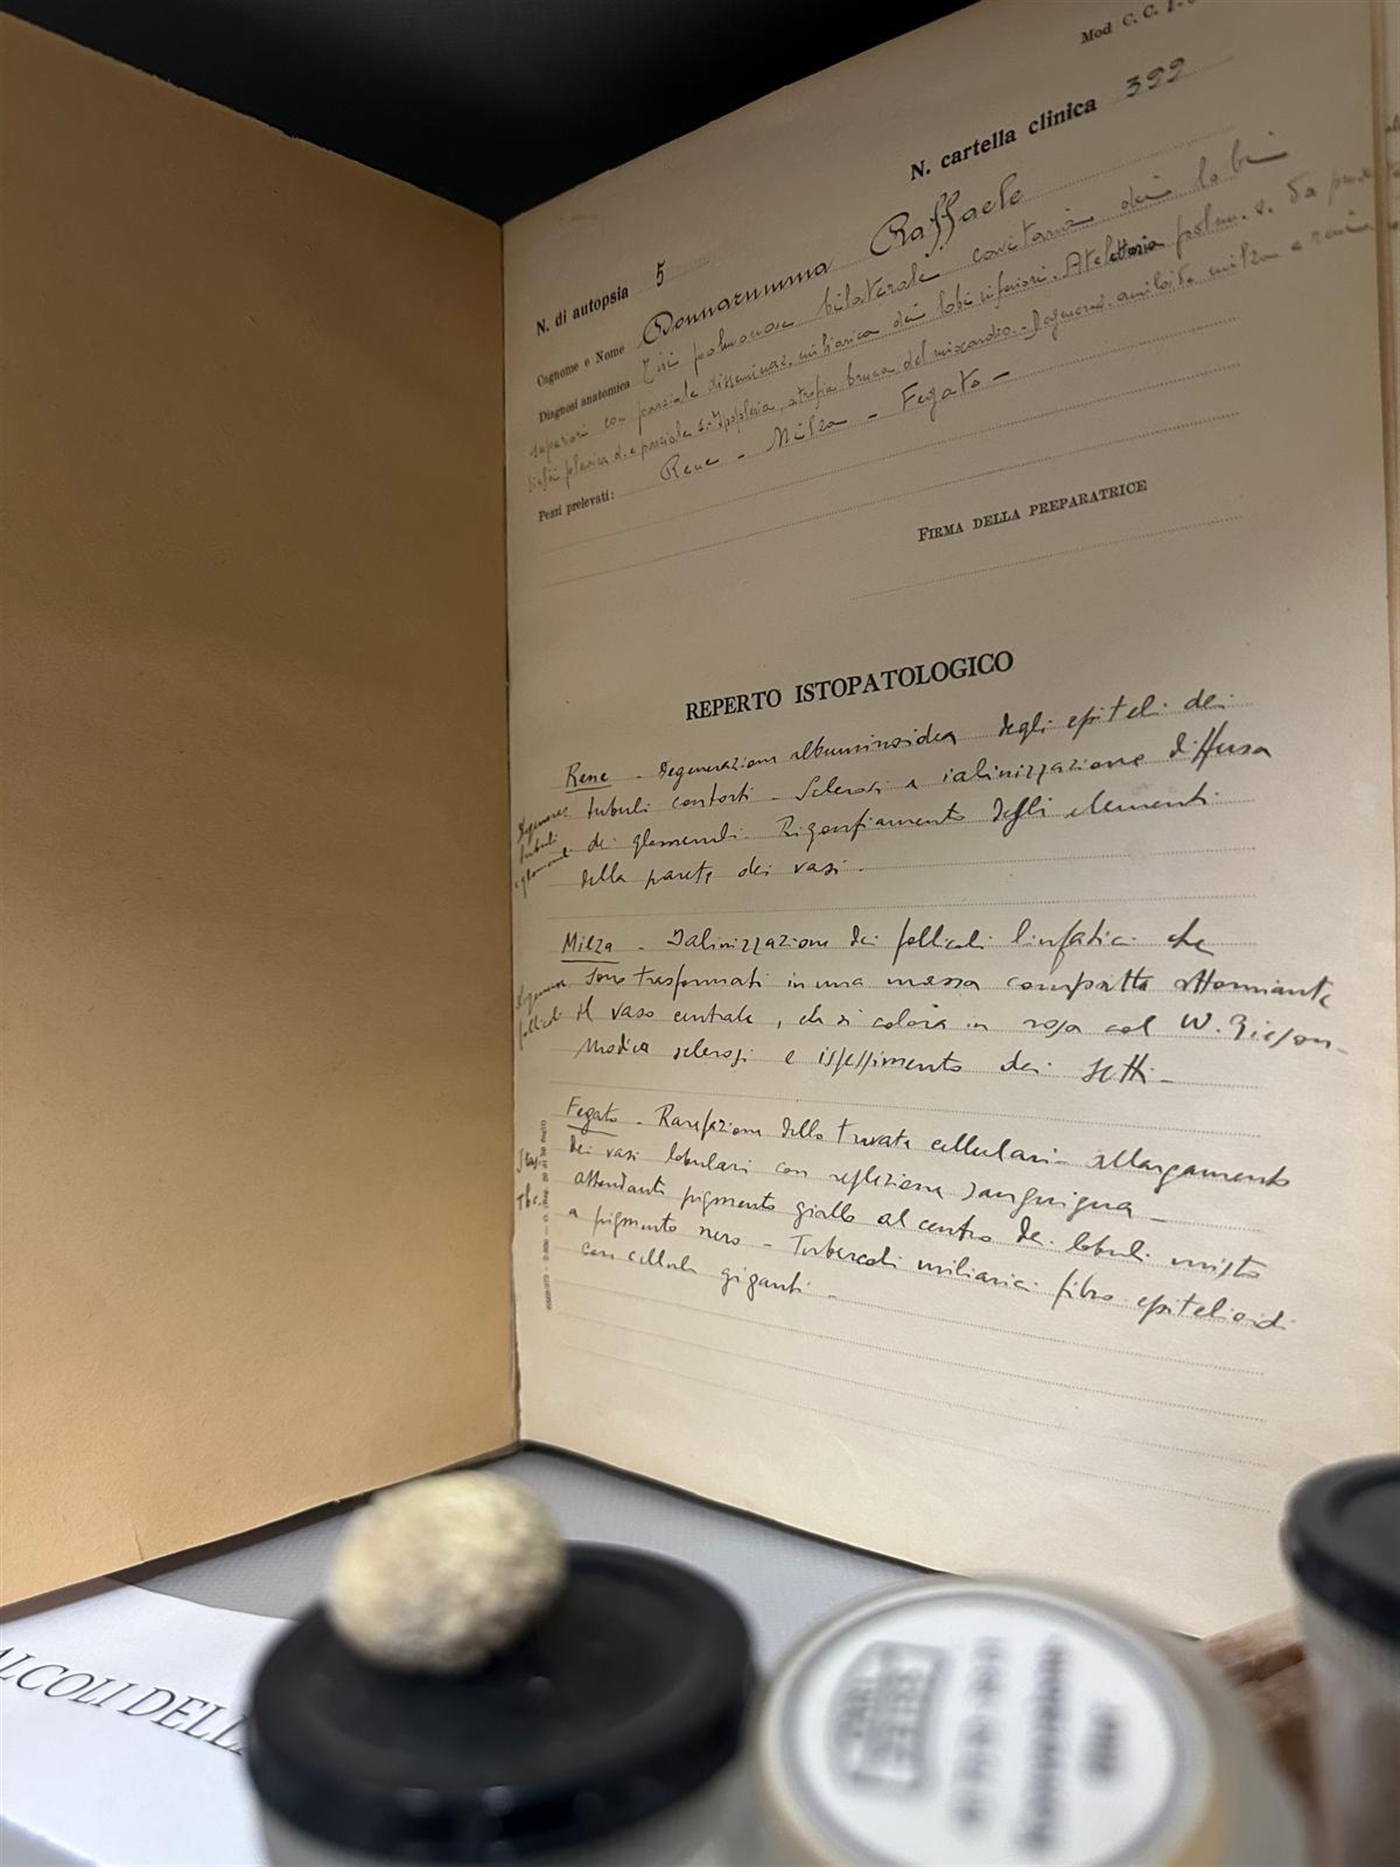 Mod C. C. I-
N. cartella clinica 399
N. di autopsia 5
Cognome e Nome Donnarumma Raffaele
Diagnosi anatomica Tisi polmonare bilaterale cavitaria dei lobi
superiori con parziale disseminaz. miliarica dei lobi inferiori. Atelettasia polm. s. da
pleurica d. e parziale s. Ipoplasia, atrofia bruna del miocardio. Degeneraz. amiloide milza e reni
Pezzi prelevati: Rene - Milza - Fegato -
FIRMA DELLA PREPARATRICE
REPERTO ISTOPATOLOGICO
Rene - Degenerazione albuminoidea degli epiteli dei
tubuli contorti - Sclerosi e ialinizzazione diffusa
dei glomeruli. Rigonfiamento degli elementi
della parete dei vasi.
Milza - Ialinizzazione dei follicoli linfatici che
sono trasformati in una massa compatta attorniante
il vaso centrale, che si colora in rosa col W. Gieson -
Modica sclerosi e ispessimento dei setti -
Fegato - Rarefazione delle travate cellulari - allargamento
dei vasi lobulari con replezione sanguigna -
abbondante pigmento giallo al centro dei lobuli misto
a pigmento nero - Tubercoli miliarici fibro epitelioidi
con cellule giganti -
Tbc.
ALCOLI DELL